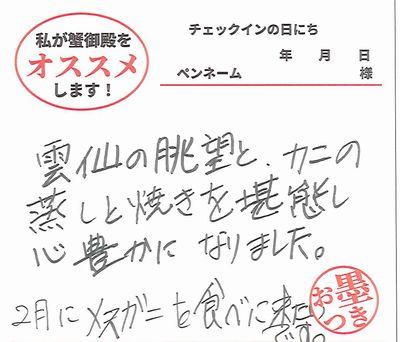 私が蟹御殿を
オススメ
します！
チェックインの日にち
年 月 日
ペンネーム 様
雲仙の眺望と、カニの
蒸しと焼きを堪能し
心豊かになりました。
2月にメスガニを食べに来たい
です。
お墨つき